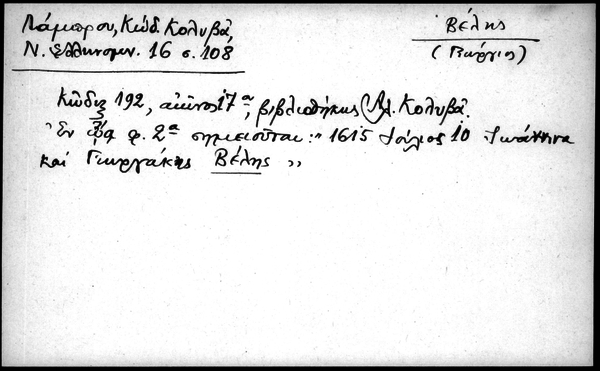 Λάμπρου, Κώδ Κολυβᾶ,
Ν. Ἑλληνομν. 16 σ. 108
Βέλης
(Γεώργιος)
Κῶδιξ 192, αἰῶνος 17ᵒʸ, βιβλιοθήκης Ἀλ. Κολυβᾶ.
Ἐν φ. 2ᵃ σημειοῦται: „ 1615 Ἰούλιος 10 Ἰωάννινα
καὶ Γεωργάκης Βέλης „